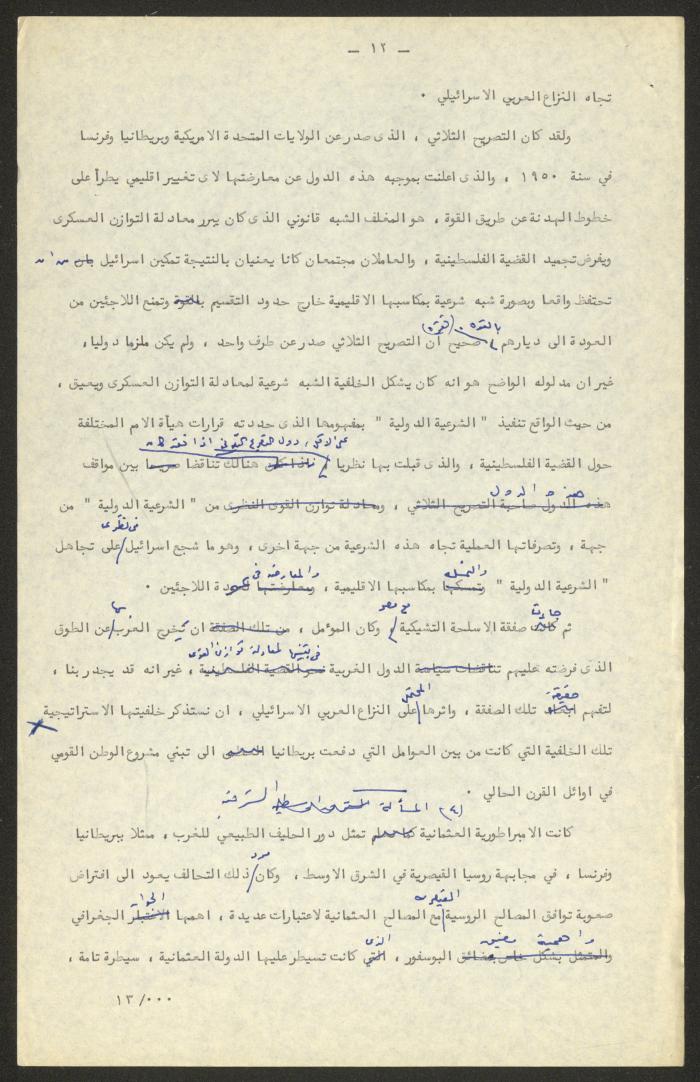 – ١٢ –
تجاه النزاع العربي الاسرائيلي .
ولقد كان التصريح الثلاثي ، الذى صدر عن الولايات المتحدة الامريكية وبريطانيا وفرنسا
في سنة ١٩٥٠ ، والذى اعلنت بموجبه هذه الدول عن معارضتها لاى تغيير اقليمي يطرأ على
خطوط الهدنة عن طريق القوة ، هو المغلف الشبه قانوني الذى كان يبرر معادلة التوازن العسكرى
ويفرض تجميد القضية الفلسطينية ، والعاملان مجتمعان كانا يعنيان بالنتيجة تمكين اسرائيل من ان
تحتفظ واقعا وبصورة شبه شرعية بمكاسبها الاقليمية خارج حدود التقسيم بالقوة وتمنع اللاجئين من
بالقوة . (فقرة)
العودة الى ديارهم صحيح أن التصريح الثلاثي صدر عن طرف واحد ، ولم يكن ملزما دوليا ،
غير ان مدلوله الواضح هو انه كان يشكل الخلفية الشبه شرعية لمعادلة التوازن العسكرى ويعيق ،
من حيث الواقع تنفيذ " الشرعية الدولية " بمفهومها الذى حددته قرارات هيأة الامم المختلفة
على الاقل ، دول التصريح الثلاثي اذا
حول القضية الفلسطينية ، والذى قبلت بها نظريا هنالك تناقضا صريحا بين مواقف
هذه الدول
هذه الدول صاحبة التصريح الثلاثي ، ومعادلة توازن القوى النظرى من " الشرعية الدولية " من
في نظرى
جهة ، وتصرفاتها العملية تجاه هذه الشرعية من جهة اخرى ، وهو ما شجع اسرائيل على تجاهل
والتمسك والمعارضة في
" الشرعية الدولية " وتمسكها بمكاسبها الاقليمية ، ومعارضتها لعودة اللاجئين .
جاءت مع مصر بها
ثم كانت صفقة الاسلحة التشيكية وكان المؤمل ، من تلك الصفقة ان تخرج العرب عن الطوق
في تبنيها لمعادلة توازن القوى
الذى فرضته عليهم تناقضات سياسة الدول الغربية نحو القضية الفلسطينية ، غير انه قد يجدر بنا ،
حقيقة المحتمل
لتفهم ابعاد تلك الصفقة ، واثرها على النزاع العربي الاسرائيلي ، ان نستذكر خلفيتها الاستراتيجية
تلك الخلفية التي كانت من بين العوامل التي دفعت بريطانيا الى تبني مشروع الوطن القومي
في اوائل القرن الحالي .
(٤) المسألة الشرقية
كانت الامبراطورية العثمانية تمثل دور الحليف الطبيعي للغرب ، ممثلا ببريطانيا
مرد
وفرنسا ، في مجابهة روسيا القيصرية في الشرق الاوسط ، وكان ذلك التحالف يعود الى افتراض
القيصرية الجوار
صعوبة توافق المصالح الروسية مع المصالح العثمانية لاعتبارات عديدة ، اهمها الجغرافي
واهمية مضيق الذى
والمتمثل بشكل خاص بمضائق البوسفور ، التي كانت تسيطر عليها الدولة العثمانية ، سيطرة تامة ،
١٣/٠٠٠